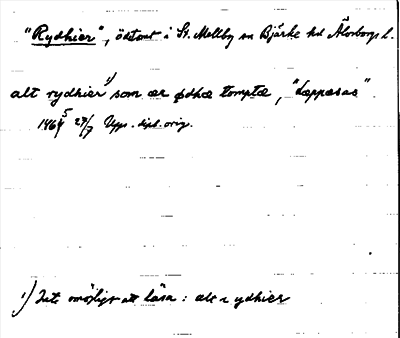 "Rydhier", ödetomt i St. Mellby sn Bjärke hd Älvsborgs l.
alt rydhier 1) som ær ødhæ tomptæ, "Læppæsas".
1465 27/7 Upps. dipl. orig.
1) Inte omöjligt att läsa: alt r ydhier